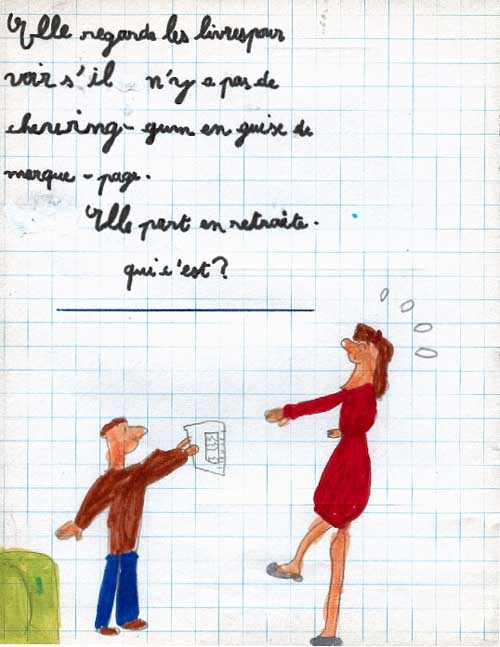 Elle regarde les livrespour
voir s'il n'y a pas de
chewing-gum en guise de
marque-page.
Elle part en retraite.
qui c'est?